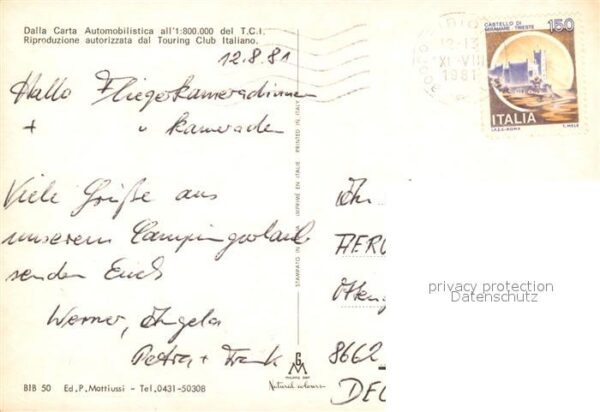 Dalla Carta Automobilistica all'1:800.000 del T.C.I.
Riproduzione autorizzata dal Touring Club Italiano.
12.8.81
Hallo Fliegerkameradinnen
+ " kameraden
Viele Grüße aus
unserem Campingurlaub
senden Euch
Werner, Angela
Petra + Frank
BIB 50 Ed. P. Mattiussi - Tel. 0431-50308
STAMPATO IN ITALIA IMPRIMÉ EN ITALIE PRINTED IN ITALY
Natural colours
12-13
XI-VIII
1981
CASTELLO DI
MIRAMARE TRIESTE
150
ITALIA
I.P.Z.S.-ROMA
E. MELE
An
AERO
8662
privacy protection
Datenschutz